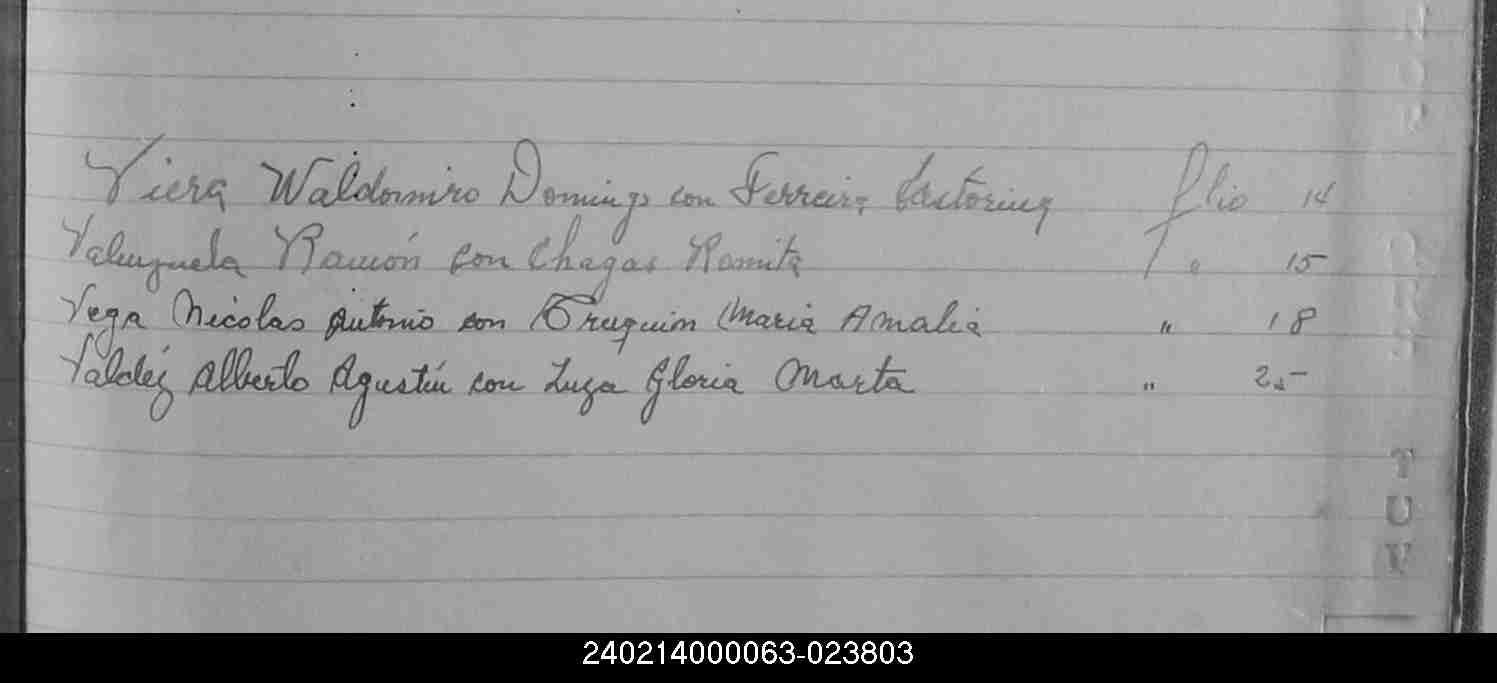 Viera Waldomiro Domingo con Ferreira Castorina folio 14
Valenzuela Ramón con Chagas Ramita " 15
Vega Nicolas Antonio con Truquin Maria Amalia " 18
Valdéz Alberto Agustín con Luza Gloria Marta " 25
T
U
V
240214000063-023803